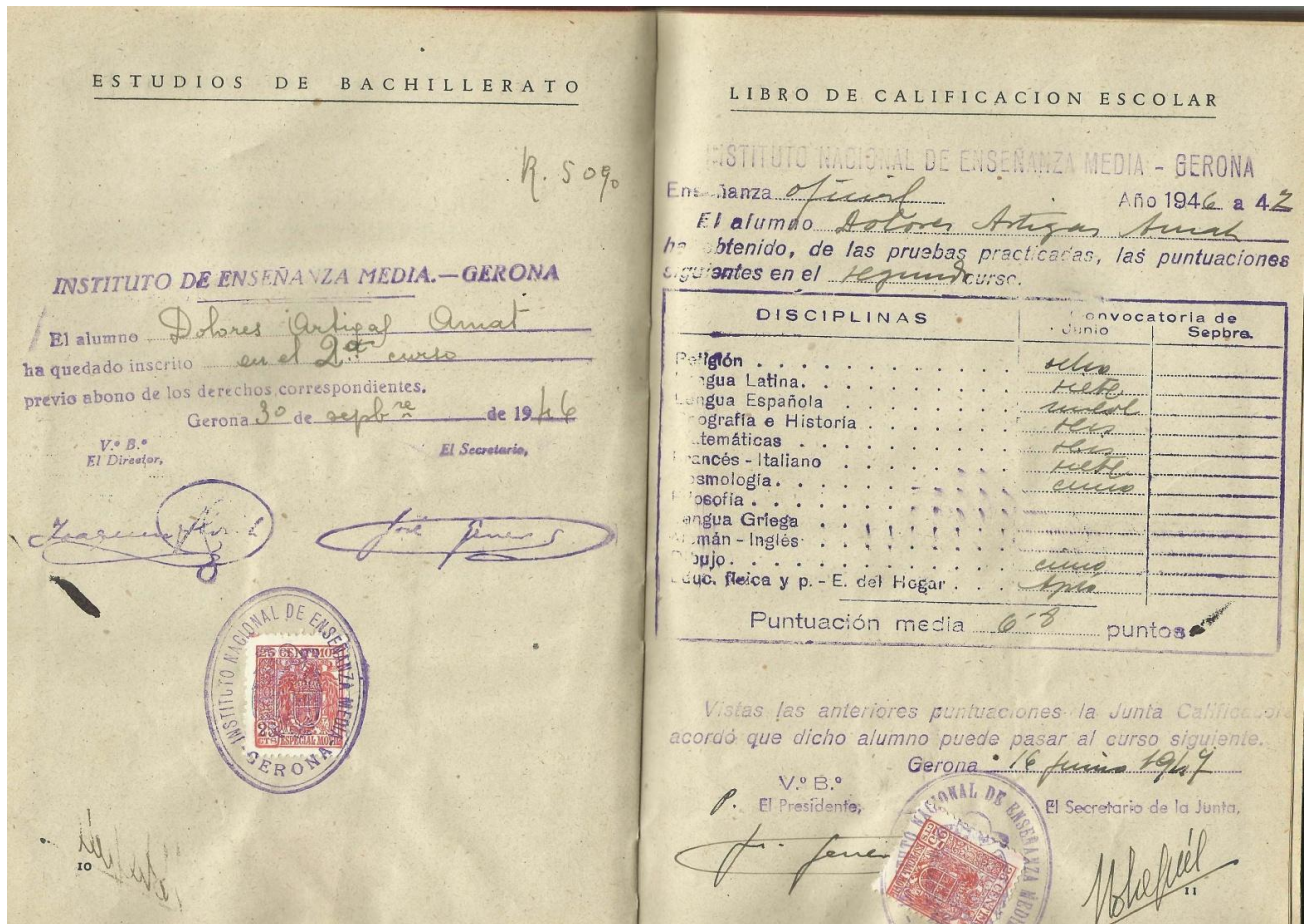 ESTUDIOS DE BACHILLERATO
R. 509
INSTITUTO DE ENSEÑANZA MEDIA.—GERONA
El alumno Dolores Artigas Amat
ha quedado inscrito en el 2º curso
previo abono de los derechos correspondientes.
Gerona 30 de sepbre de 1946
V.º B.º
El Director,
El Secretario,
INSTITUTO NACIONAL DE ENSEÑANZA MEDIA
GERONA
25 CENTIMOS
25
CTS
ESPECIAL MOVIL
10
LIBRO DE CALIFICACION ESCOLAR
INSTITUTO NACIONAL DE ENSEÑANZA MEDIA - GERONA
Enseñanza oficial Año 1946 a 47
El alumno Dolores Artigas Amat
ha obtenido, de las pruebas practicadas, las puntuaciones
siguientes en el segundo curso.
DISCIPLINAS Convocatoria de
Junio Sepbre.
Religión ocho
Lengua Latina. siete
Lengua Española
Geografía e Historia seis
Matemáticas seis
Francés - Italiano siete
Cosmología. cinco
Filosofía
Lengua Griega
Alemán - Inglés
Dibujo. cinco
Educ. física y p. - E. del Hogar Apta
Puntuación media 6'8 puntos
Vistas las anteriores puntuaciones la Junta Calificadora
acordó que dicho alumno puede pasar al curso siguiente.
Gerona 16 junio 1947
V.º B.º
P. El Presidente,
El Secretario de la Junta,
NACIONAL DE ENSEÑANZA MEDIA
11